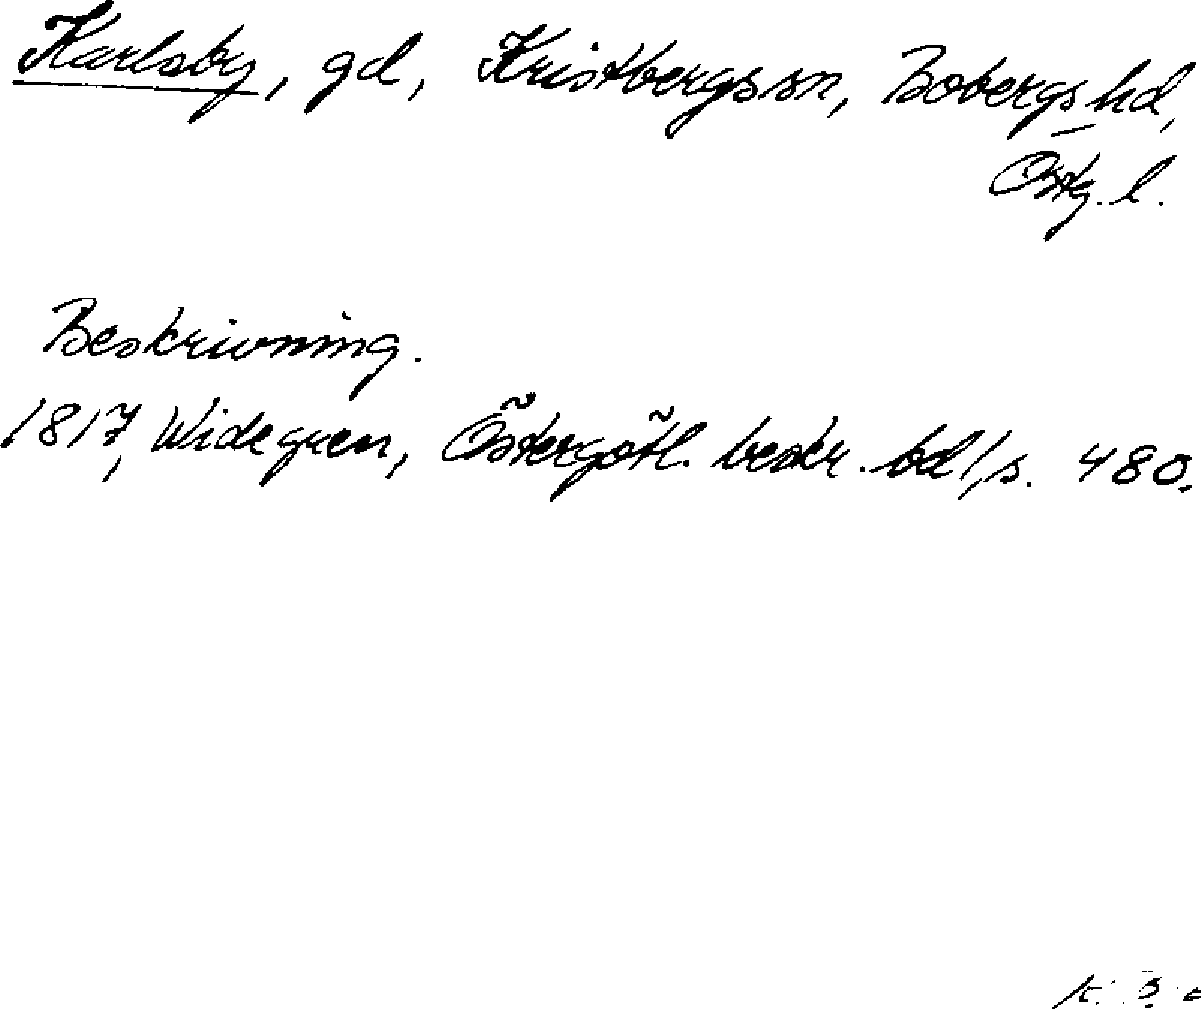 Karlsby, gd, Kristbergs sn, Bobergs hd,
Östg. l.
Beskrivning.
1817, Widegren, Östergötl. beskr. bd 1, s. 480.